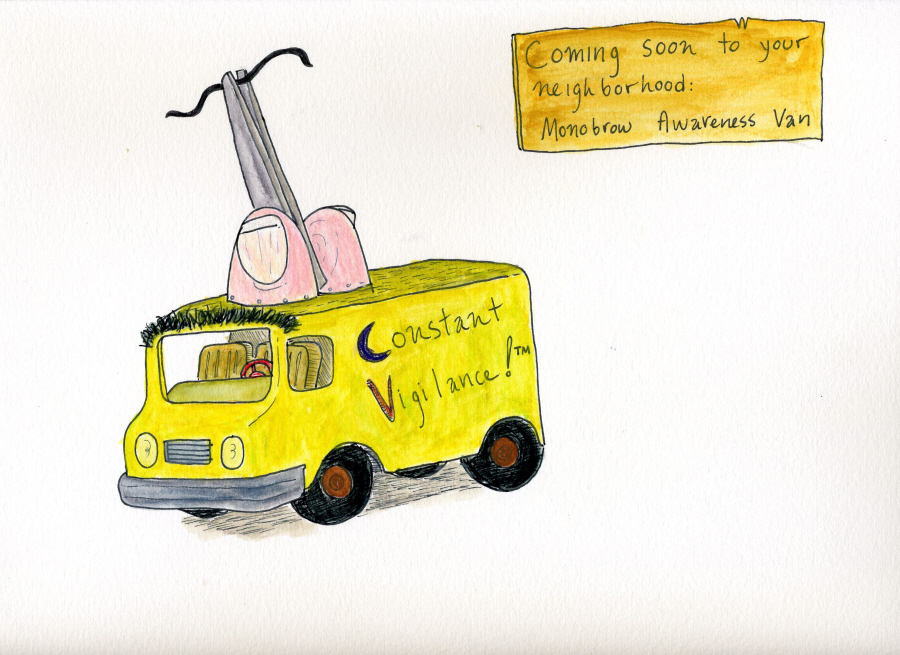 Coming soon to your
neighborhood:
Monobrow Awareness Van
Constant
Vigilance!™